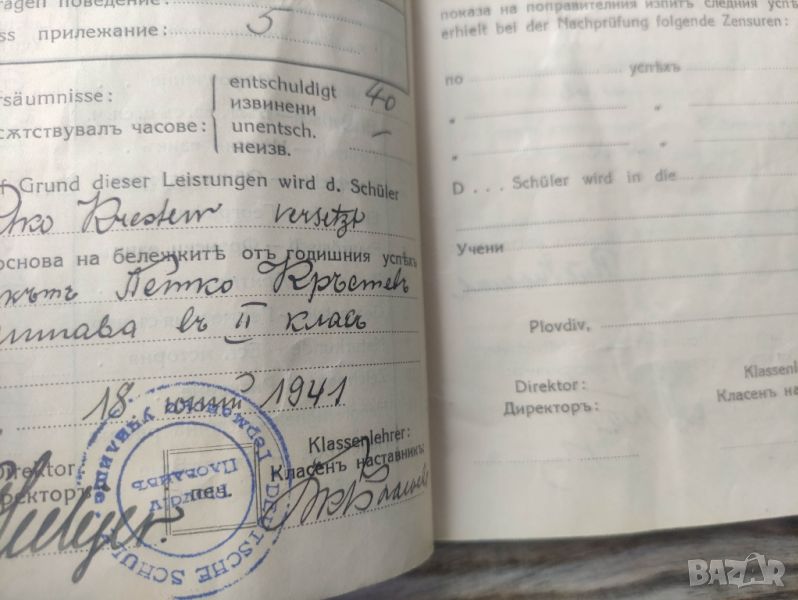 поведение:
прилежание: 5
entschuldigt 40
извинени
часове: unentsch. -
неизв.
Grund dieser Leistungen wird d. Schüler
Krestew versetzt
основа на бележкитѣ отъ годишния успѣхъ
Петко Кръстевъ
въ II класъ
18. юний 1941
Klassenlehrer:
Класенъ наставникъ:
DEUTSCHE SCHULE
Plovdiv
Пловдивъ
показа на поправителния изпитъ следния
erhielt bei der Nachprüfung folgende Zensuren:
по успѣхъ
" "
" "
D . . . Schüler wird in die
Учени
Plovdiv,
Direktor:
Директоръ:
Класенъ
BAZAR
bg